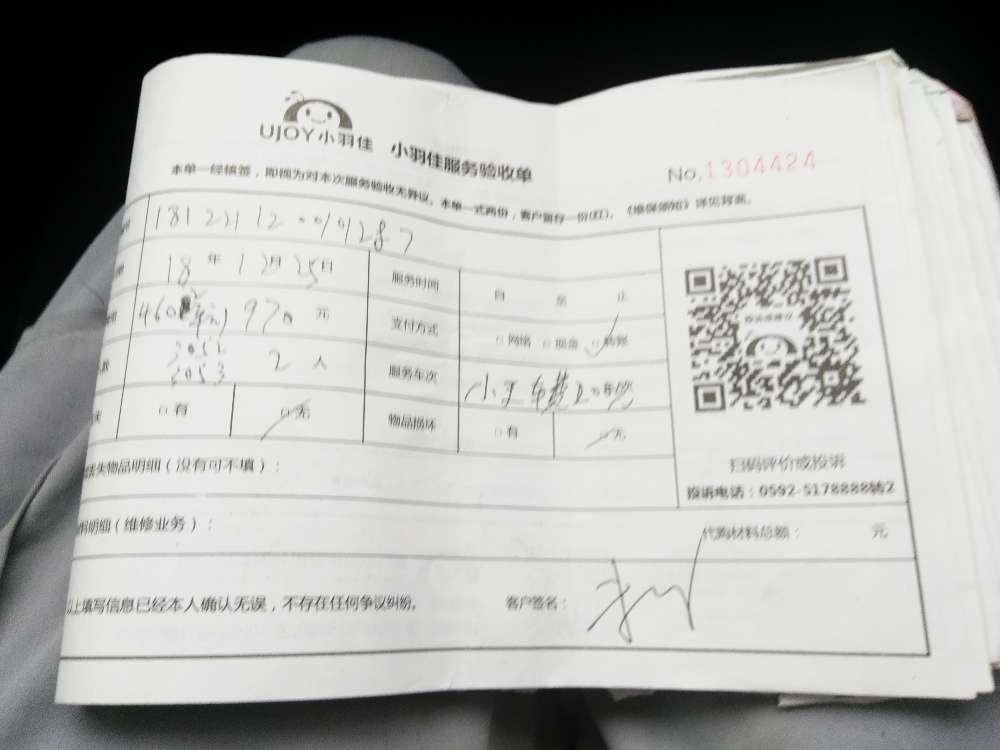 UJOY小羽佳 小羽佳服务验收单
No.1304424
本单一经核签，即视为对本次服务验收无异议。本单一式两份，客户留存一份(红)。《维保须知》详见背面。
18年12月25日 服务时间 自 至 止
970元 支付方式 网络 现金 转账
3052
3053 2人 服务车次
有 无 物品损坏 有 无
失物品明细（没有可不填）：
扫码评价或投诉
投诉电话：0592-5178888转2
明细（维修业务）： 代购材料总额： 元
以上填写信息已经本人确认无误，不存在任何争议纠纷。 客户签名：